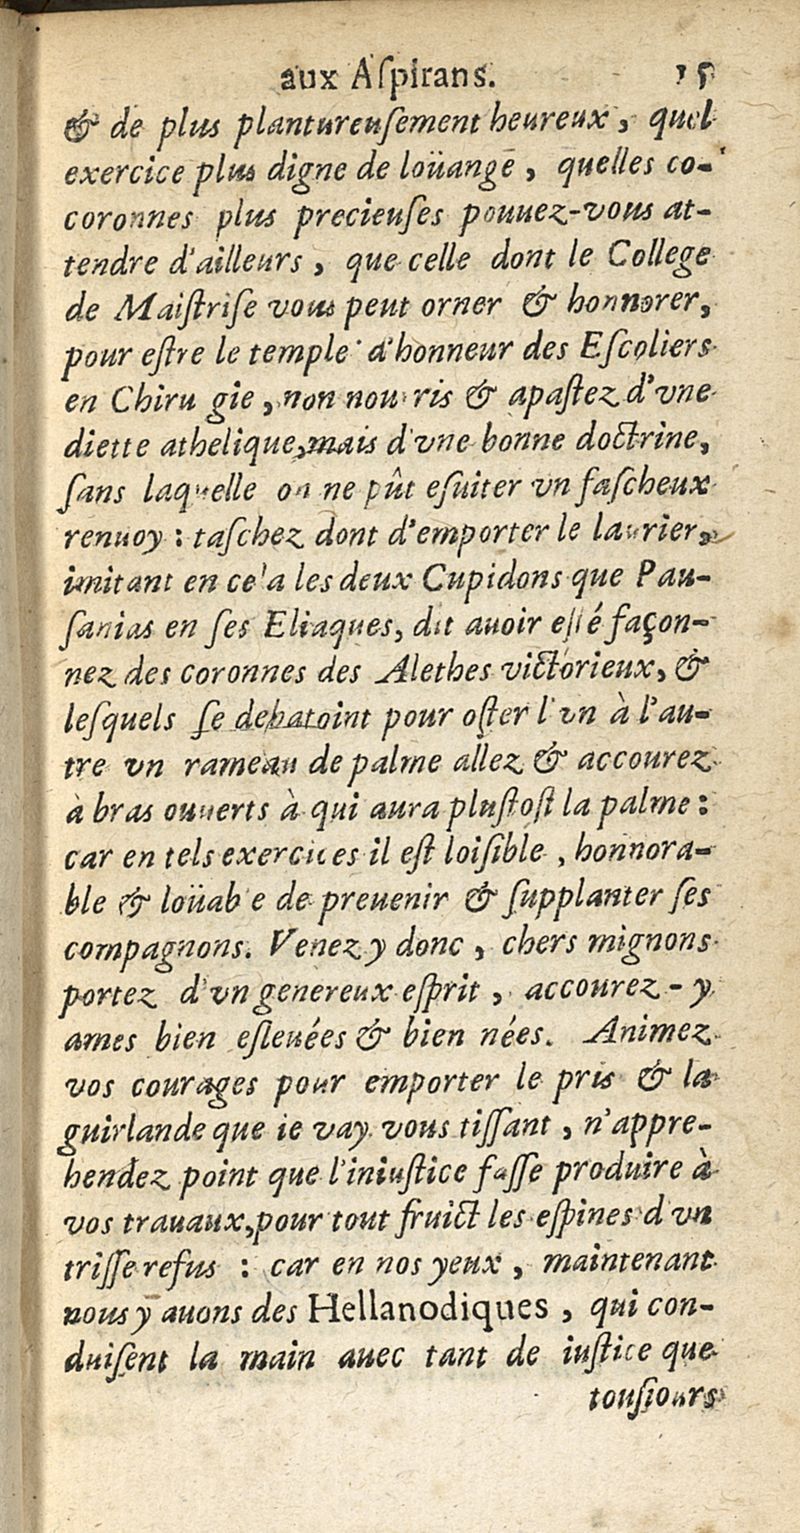 aux Aſpirans. 15
& de plus plantureuſement heureux, quel
exercice plus digne de loüange, quelles co-
coronnes plus precieuſes pouuez-vous at-
tendre d'ailleurs, que celle dont le College
de Maiſtriſe vous peut orner & honnorer,
pour eſtre le temple d'honneur des Eſcoliers
en Chiru gie, non nourris & apaſtez d'vne
diette athelique, mais d'vne bonne doctrine,
ſans laquelle on ne pût eſuiter vn faſcheux
renuoy : taſchez dont d'emporter le laurier,
imitant en cela les deux Cupidons que Pau-
ſanias en ſes Eliaques, dit auoir eſté façon-
nez des coronnes des Alethes victorieux, &
leſquels ſe debatoint pour oſter l'vn à l'au-
tre vn rameau de palme allez & accourez
à bras ouuerts à qui aura pluſtoſt la palme :
car en tels exercices il eſt loiſible, honnora-
ble & loüab e de preuenir & ſupplanter ſes
compagnons. Venez y donc, chers mignons
portez d'vn genereux eſprit, accourez-y
ames bien eſleuées & bien nées. Animez
vos courages pour emporter le pris & la
guirlande que ie vay vous tiſſant, n'appre-
hendez point que l'iniuſtice faſſe produire à
vos trauaux, pour tout fruict les eſpines d'vn
triſſe refus : car en nos yeux, maintenant
nous y auons des Hellanodiques, qui con-
duiſent la main auec tant de iuſtice que
touſiours